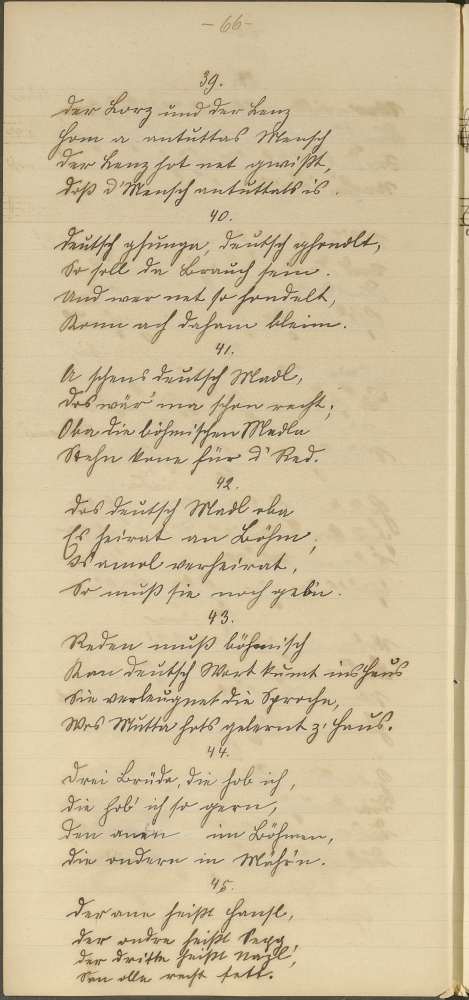 - 66 -
39.
Der Lorz und der Lenz
Hom a antuttas Mensch
Der Lenz hot net gwißt,
Doß d' Mensch antuttats is.
40.
Deutsch gsunga, deutsch ghondlt,
So soll da Brauch sein.
Und wer net so hondelt,
Konn ach daham bleim.
41.
A schens deutsch Madl,
Dos wär' ma schon recht;
Oba die böhmischen Medla
Stehn kane für d' Red.
42.
Dos deutsch Madl oba
Es heirat an Böhm;
Is amol verheirat,
So muß sie noch geb'n.
43.
Reden muß böhmisch
Kan deutsch Wort kumt ins Haus
Sie verleugnet die Sproche,
Wos Mutta hots gelernt z' Haus.
44.
Drei Brüda, die hob ich,
die hob' ich so gern,
den anen im Böhmen,
die ondern in Mähr'n.
45.
Der ane heißt Hansl,
der ondre heißt Sepp
der dritte heißt Nazl,
San olle recht fett.